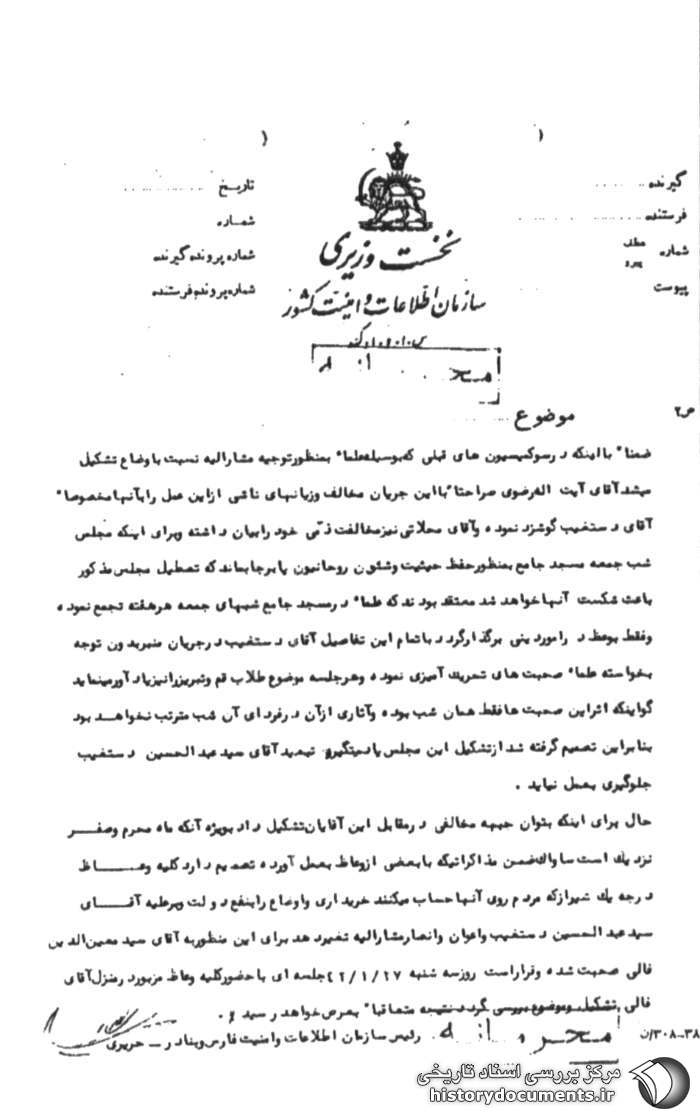 گیرنده
فرستنده
شماره
عطف
پیرو
پیوست
تاریخ
شماره
شماره پرونده گیرنده
شماره پرونده فرستنده
نخست وزیری
سازمان اطلاعات و امنیت کشور
محرمانه
ص۲
موضوع
ضمناً بااینکه درسوکمیسیون های قبلی که بوسیله علماء بمنظور توجیه مشارالیه نسبت باوضاع تشکیل
میشد آقای آیت اله رضوی صراحتاً با این جریان مخالف وزیانهای ناشی ازاین عمل رابآنها مخصوصاً
آقای دستغیب گوشزد نموده وآقای محلاتی نیز مخالفت ذهنی خود رابیان داشته وبرای اینکه مجلس
شب جمعه مسجد جامع بمنظور حفظ حیثیت وشئون روحانیون پابرجا بماند که تعطیل مجلس مذکور
باعث شکست آنها خواهد شد معتقد بودند که علماء درمسجد جامع شبهای جمعه هرهفته تجمع نموده
وفقط بوعظ در امور دینی برگذار گردد با تمام این تفاصیل آقای دستغیب درجریان منبر بدون توجه
بخواسته علماء صحبت های تحریک آمیزی نموده وهرجلسه موضوع طلاب قم وتبریز رانیز یادآور مینماید
گواینکه اثر این صحبت ها فقط همان شب بوده وآثاری ازآن درفردای آن شب مترتب نخواهد بود
بنابراین تصمیم گرفته شد ازتشکیل این مجلس یادستگیری وتبعید آقای سید عبدالحسین دستغیب
جلوگیری بعمل نیاید .
حال برای اینکه بتوان جبهه مخالفی درمقابل این آقایان تشکیل داد بویژه آنکه ماه محرم وصفر
نزدیک است ساواک ضمن مذاکراتیکه بابعضی ازوعاظ بعمل آورده تصمیم دارد کلیه وعاظ
درجه یک شیراز که مردم روی آنها حساب میکنند خریداری واوضاع رابنفع دولت وبرعلیه آقای
سید عبدالحسین دستغیب واعوان وانصار مشارالیه تغییر دهد برای این منظور به آقای سید معین الدین
فالی صحبت شده وقرار است روز سه شنبه ۴۲/۱/۲۷ جلسه ای باحضور کلیه وعاظ مزبور درمنزل آقای
فالی تشکیل وموضوع بررسی گردد نتیجه متعاقباً بعرض خواهد رسید .
رئیس سازمان اطلاعات وامنیت فارس وبنادر - حریری
محرمانه
۳۸-۳۰۸/ن
مرکز بررسی اسناد تاریخی
historydocuments.ir